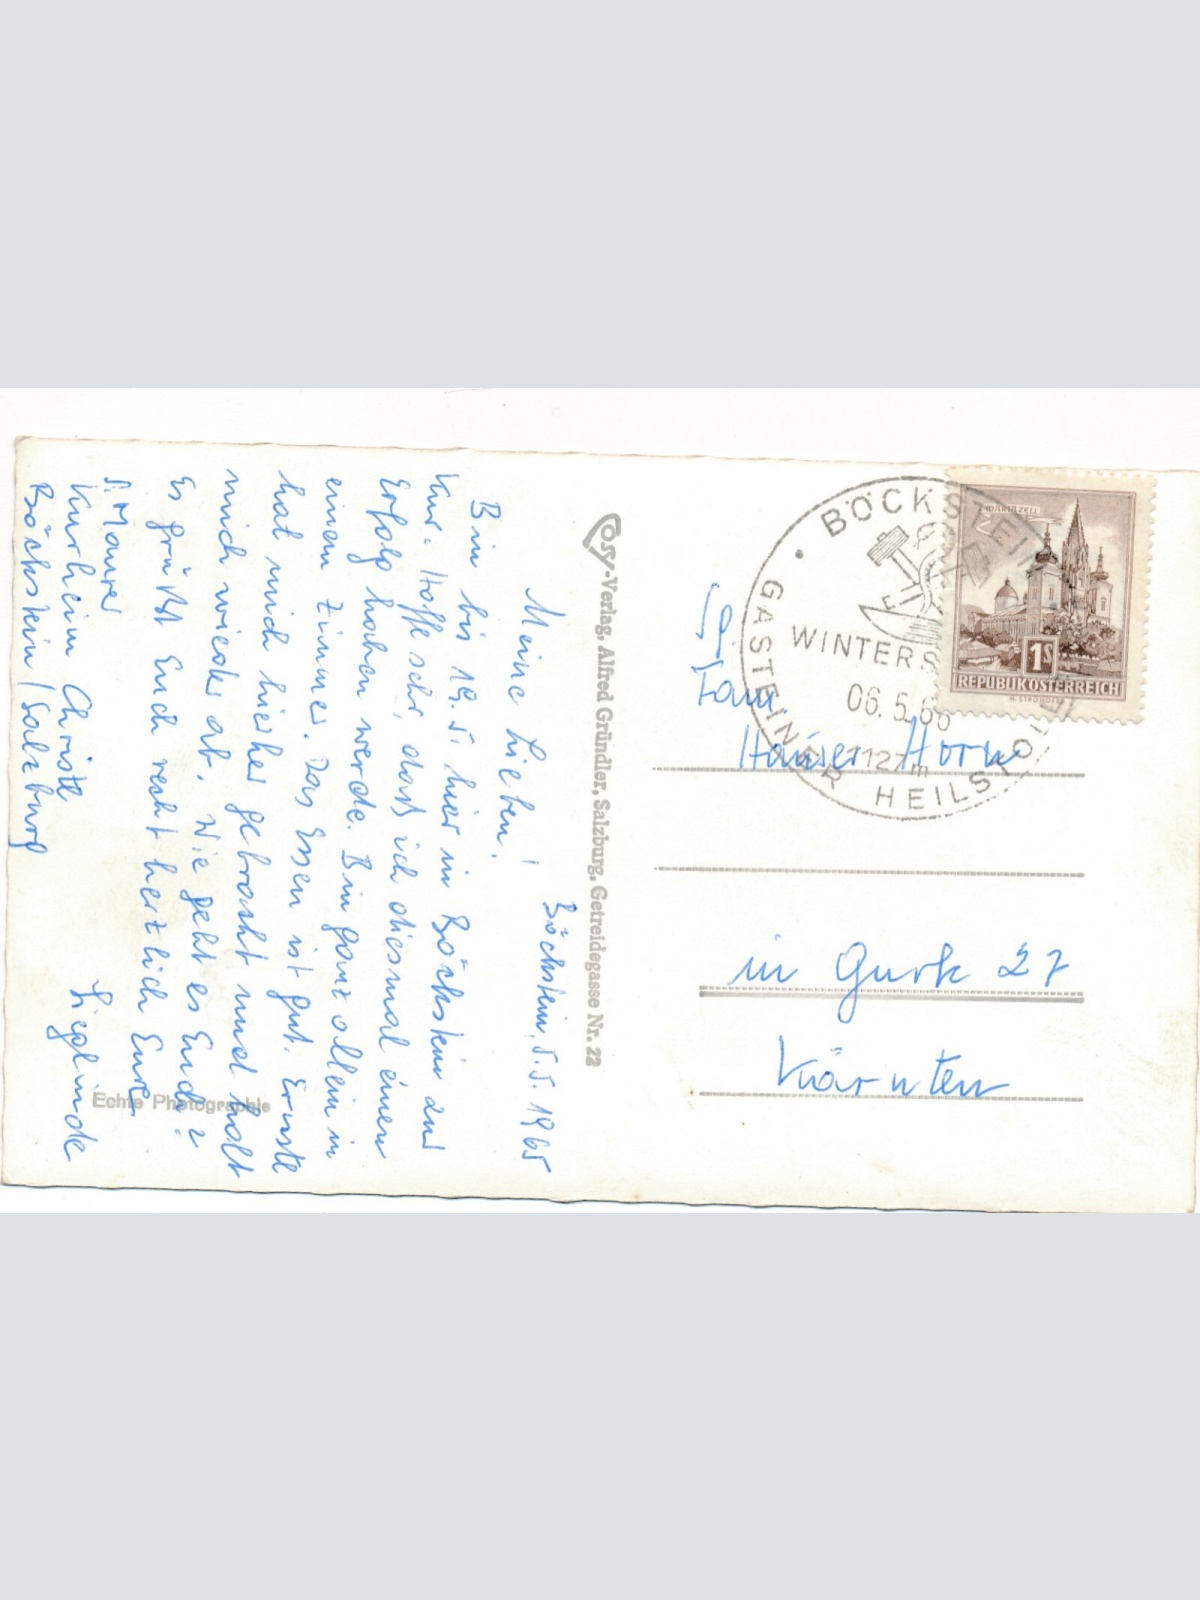 Böckstein, 5.5.1965
Meine Lieben!
Bin bis 19.5. hier in Böckstein auf
Kur. Hoffe sehr, daß ich diesmal einen
Erfolg haben werde. Bin ganz allein in
einem Zimmer. Das Essen ist gut. Ernstl
hat mich hierher gebracht und holt
mich wieder ab. Wie geht es Euch?
Es grüßt Euch recht herzlich Eure
Sieglinde
S. Maurer
Kurheim Christl
Böckstein / Salzburg
Echte Photographie
Cosy-Verlag, Alfred Gründler, Salzburg, Getreidegasse Nr. 22
BÖCKSTEIN
WINTERS
06.5.65
1127m
GASTEINER HEILSTO
MARIAZELL
1S
REPUBLIK ÖSTERREICH
Fam
Hauser
in Gurk 27
Kärnten